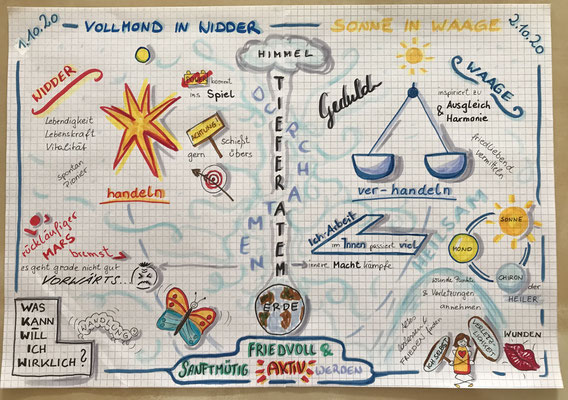 1.10.20
VOLLMOND IN WIDDER
SONNE IN WAAGE
2.10.20
HIMMEL
WIDDER
Lebendigkeit
Lebenskraft
Vitalität
spontan
Pionier
handeln
kommt
ins Spiel
ACHTUNG!
Schießt
gern
übers
TIEFER ATEM
DURCHATMEN
Geduld
WAAGE
inspiriert zu
Ausgleich
& Harmonie
friedliebend
vermitteln
ver-handeln
Ich-Arbeit
im Innen passiert viel
innere Machtkämpfe
HEILSAM
rückläufiger
MARS
bremst
es geht grade nicht gut
VORWÄRTS...
SONNE
MOND
CHIRON
der
HEILER
wunde Punkte
& Verletzungen
annehmen
FRIEDEN
ICH SELBST
VERLETZ-
LICHKEIT
WUNDEN
WAS
KANN -
WILL
ICH
WIRKLICH?
WANDLUNG
ERDE
FRIEDVOLL &
SANFTMÜTIG AKTIV WERDEN